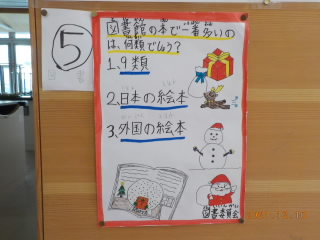 ⑤
図書館の本で一番多いの
は、何類でしょう?
1.9類
2.日本の絵本
3.外国の絵本
図書委員会